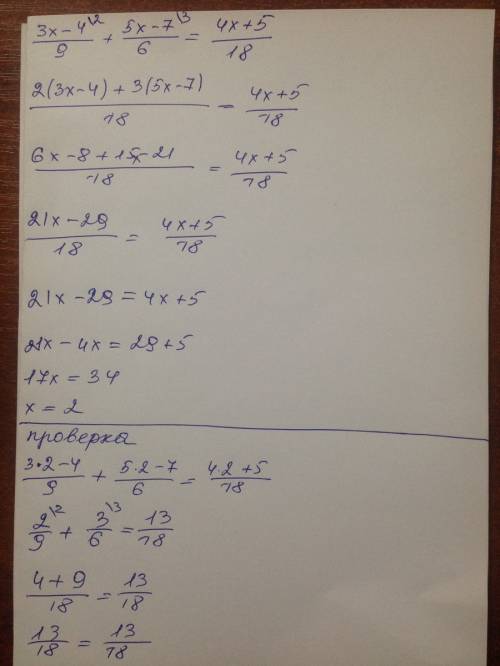 (3x-4)\2/9 + (5x-7)\3/6 = (4x+5)/18
(2(3x-4)+3(5x-7))/18 = (4x+5)/18
(6x-8+15x-21)/18 = (4x+5)/18
(21x-29)/18 = (4x+5)/18
21x-29=4x+5
21x-4x=29+5
17x=34
x=2
проверка
(3·2-4)/9 + (5·2-7)/6 = (4·2+5)/18
2\2/9 + 3\3/6 = 13/18
(4+9)/18 = 13/18
13/18 = 13/18